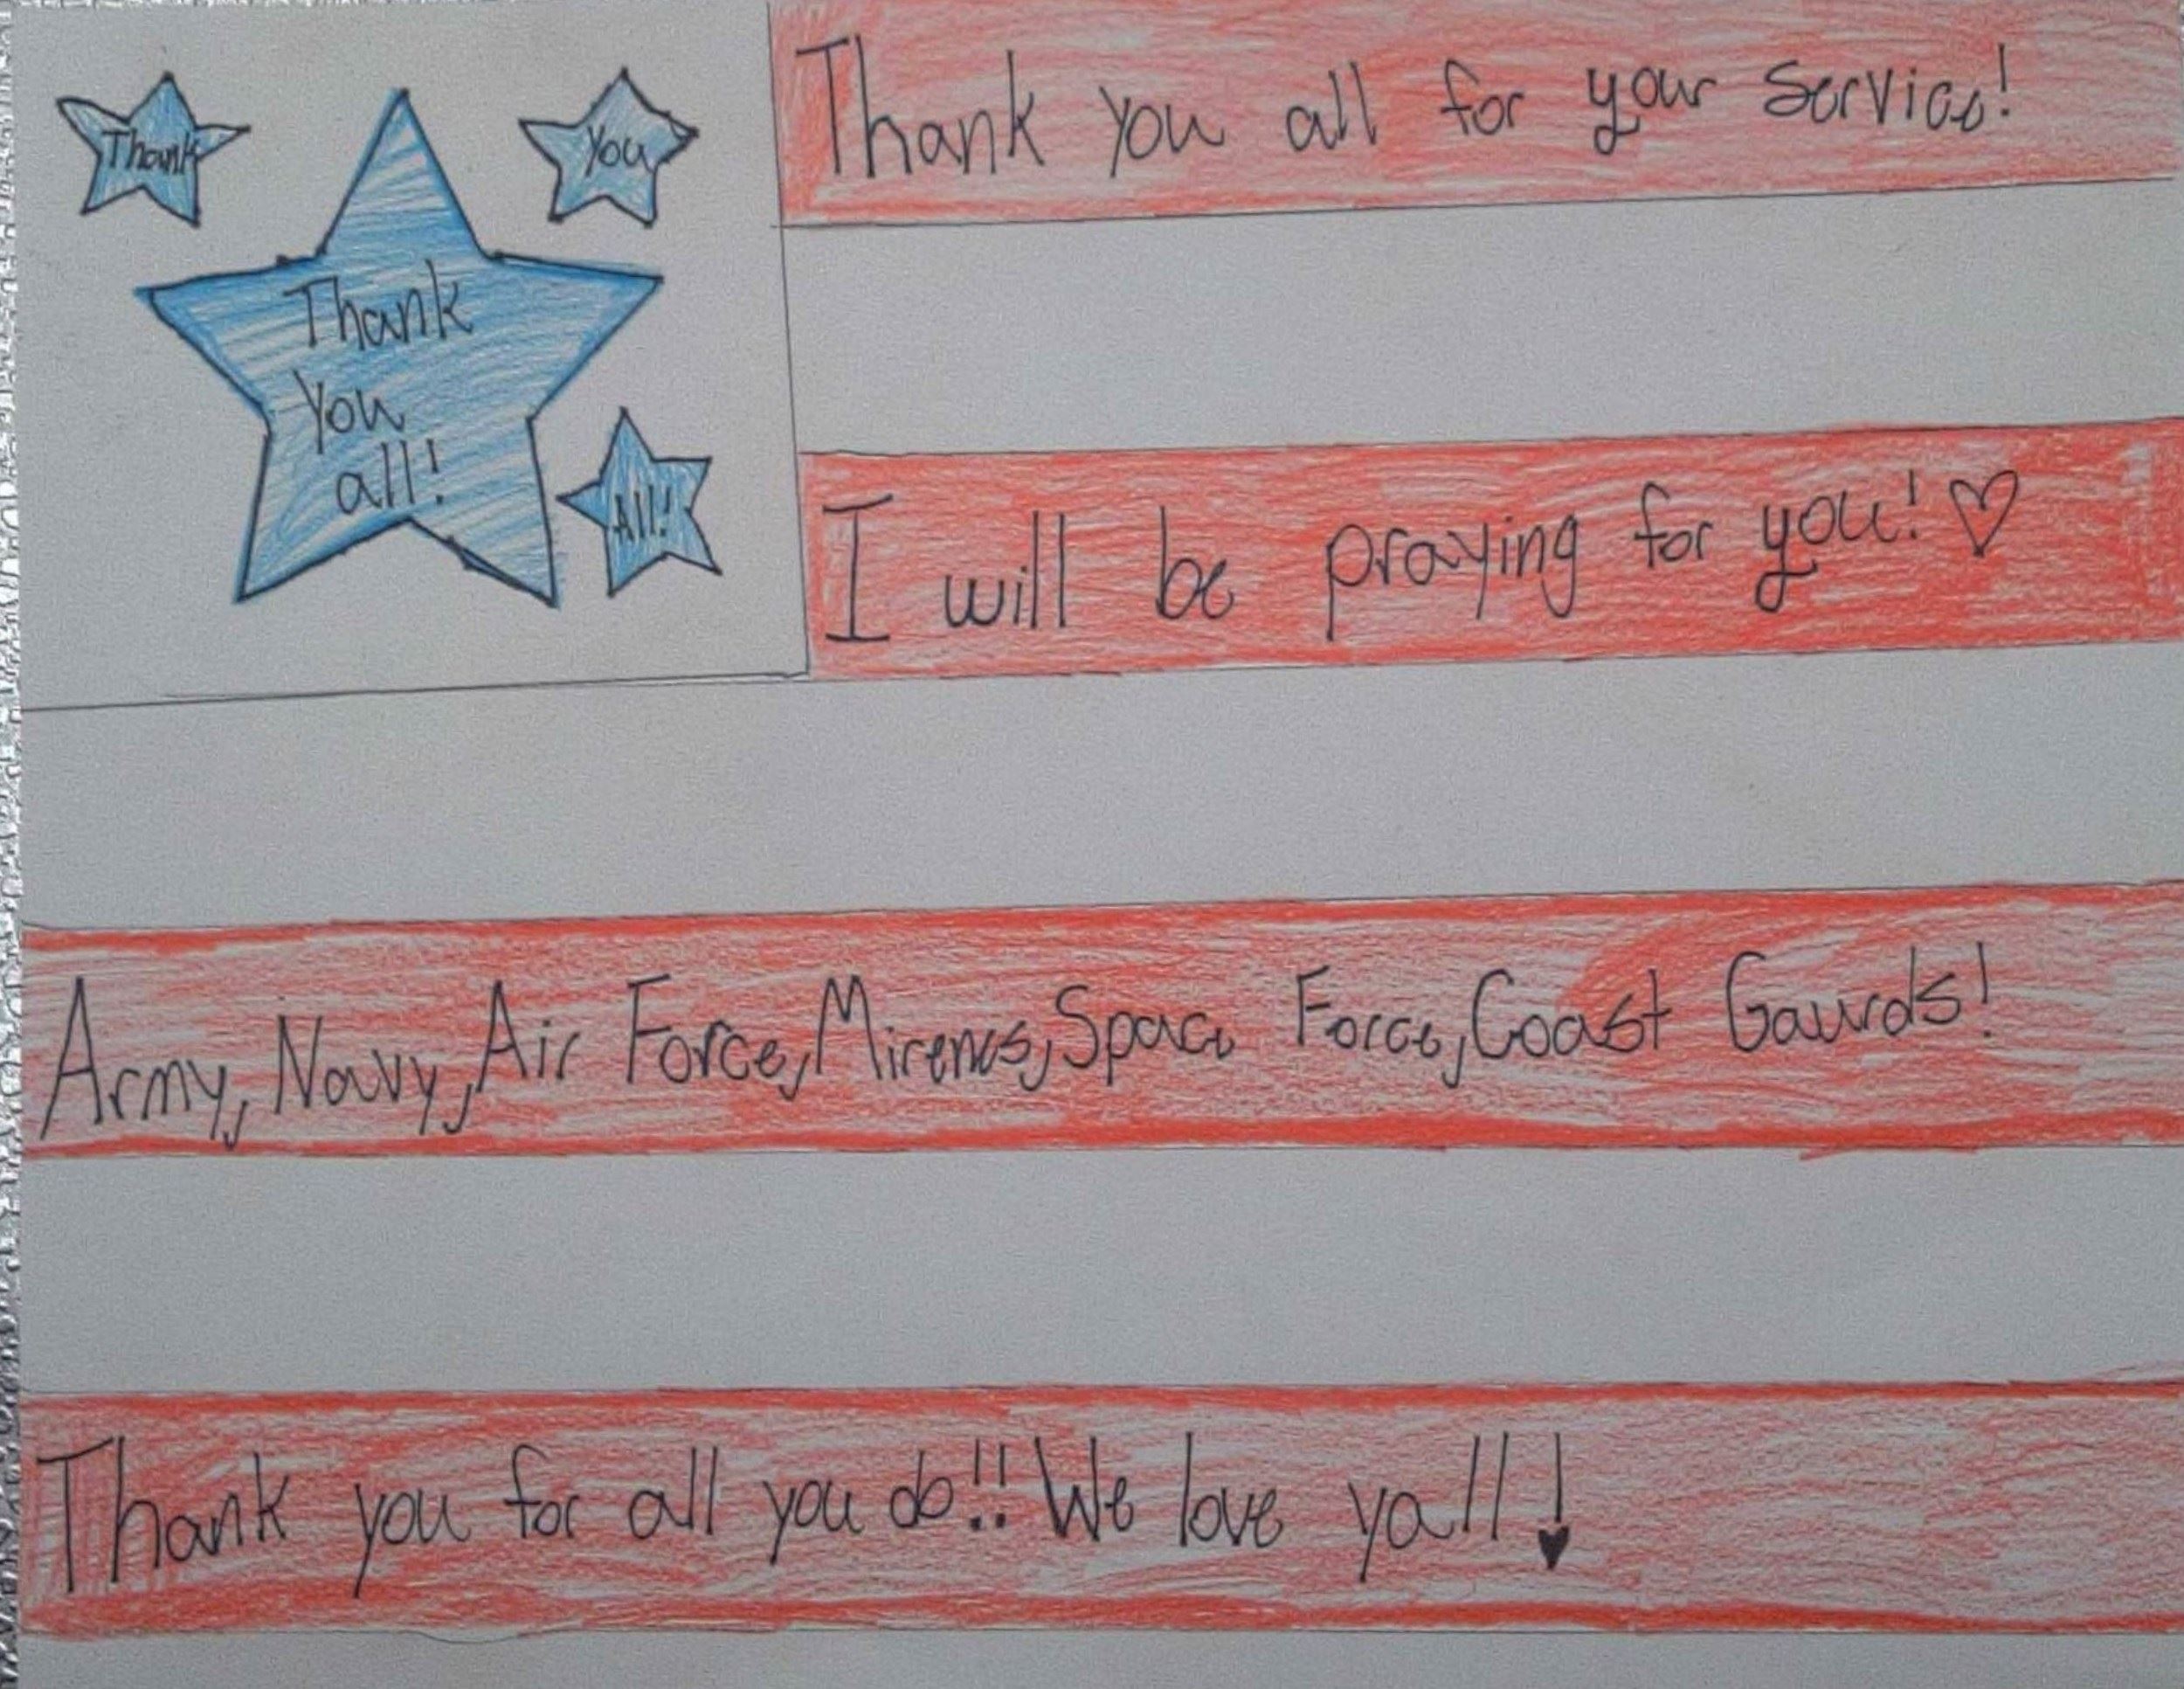 Thank
You
Thank
You
all!
All!
Thank you all for your service!
I will be praying for you! ♡
Army, Navy, Air Force, Mirenes, Space Force, Coast Gaurds!
Thank you for all you do!! We love yall!